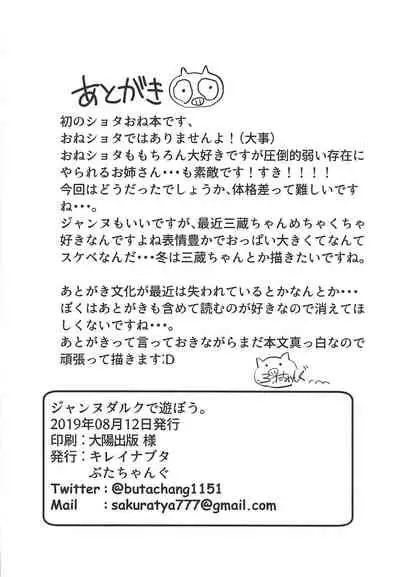 あとがき
初のショタおね本です、
おねショタではありませんよ！(大事)
おねショタももちろん大好きですが圧倒的弱い存在に
やられるお姉さん・・・も素敵です！すき！！！！
今回はどうだったでしょうか、体格差って難しいです
ね・・・。
ジャンヌもいいですが、最近三蔵ちゃんめちゃくちゃ
好きなんですよね表情豊かでおっぱい大きくてなんて
スケベなんだ・・・冬は三蔵ちゃんとか描きたいですね。
あとがき文化が最近は失われているとかなんとか・・・
ぼくはあとがきも含めて読むのが好きなので消えてほ
しくないですね・・・。
あとがきって言っておきながらまだ本文真っ白なので
頑張って描きます:D
ジャンヌダルクで遊ぼう。
2019年08月12日発行
印刷：大陽出版 様
発行：キレイナブタ
ぶたちゃんぐ
Twitter : @butachang1151
Mail : sakuratya777@gmail.com